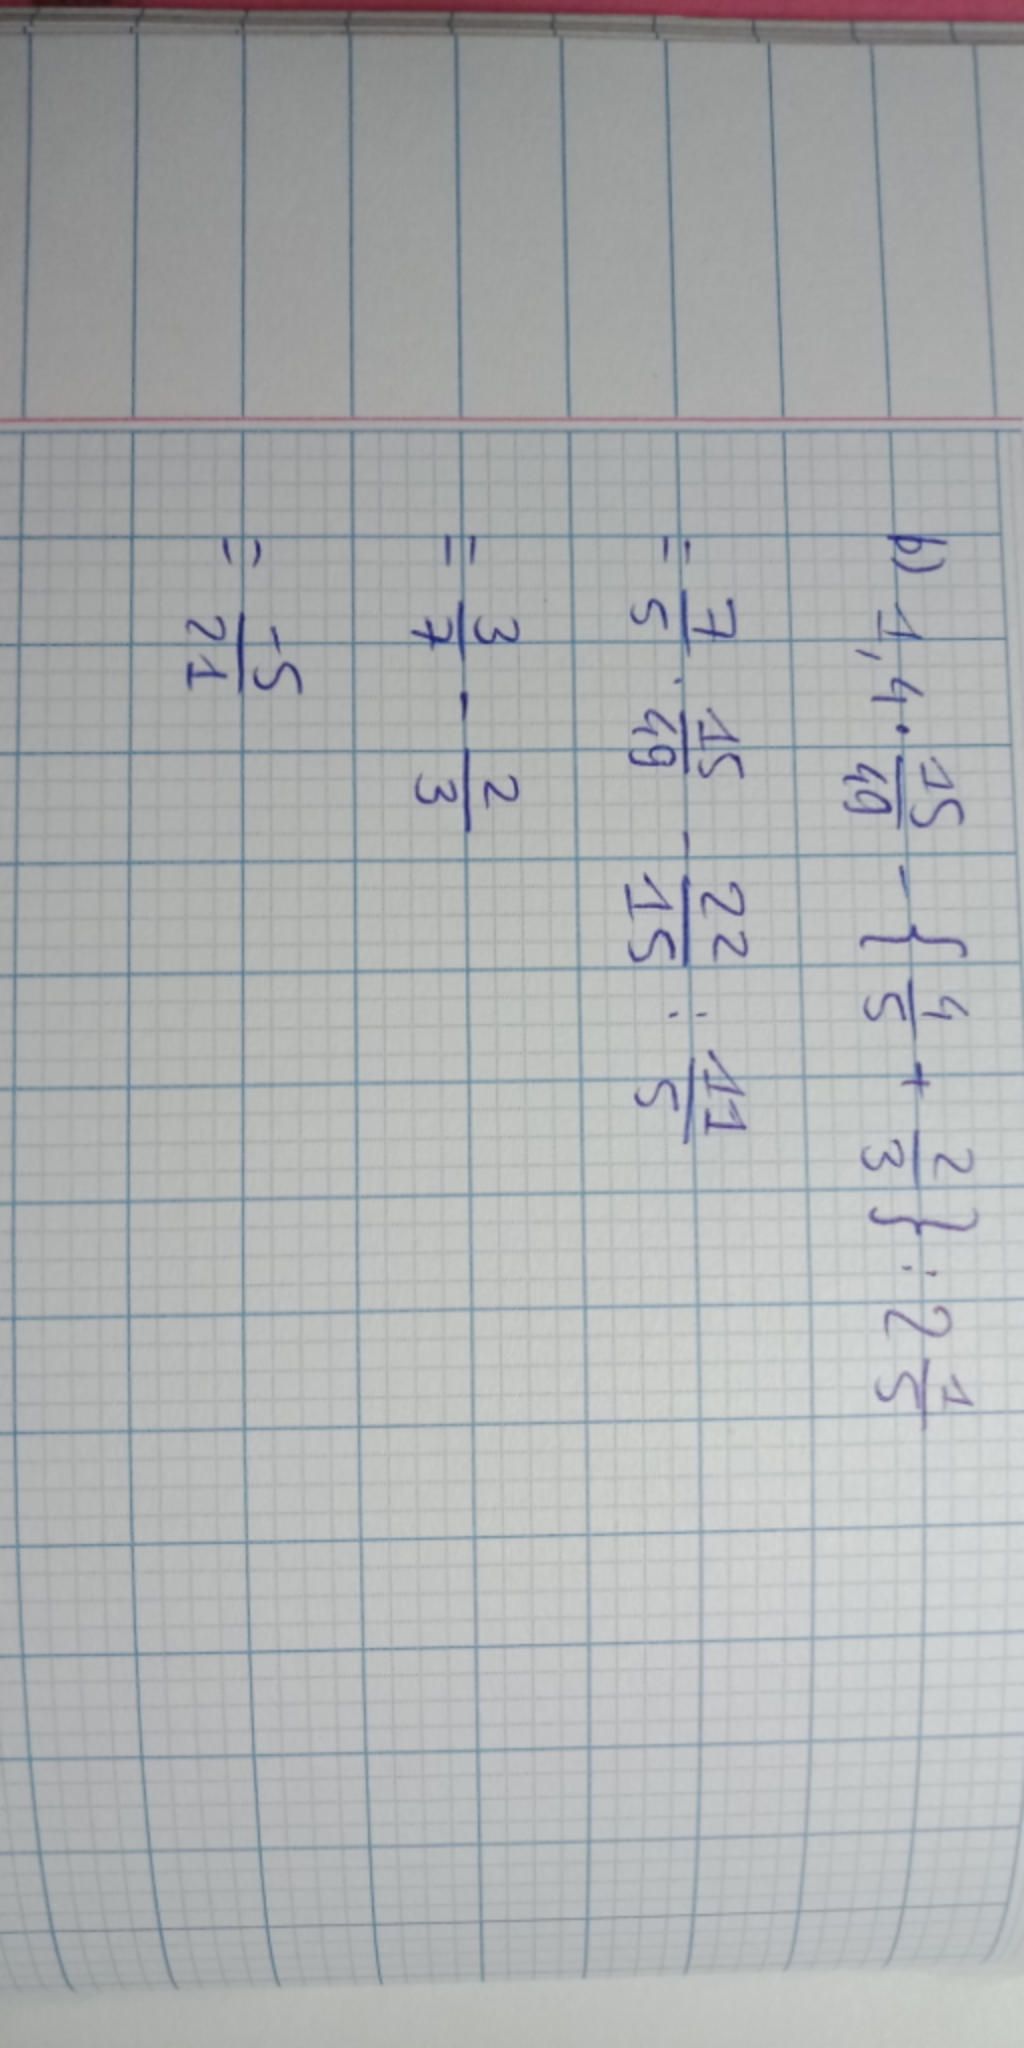 b) 1,4 · 15/49 - { 4/5 + 2/3 } : 2 1/5
= 7/5 · 15/49 - 22/15 : 11/5
= 3/7 - 2/3
= -5/21